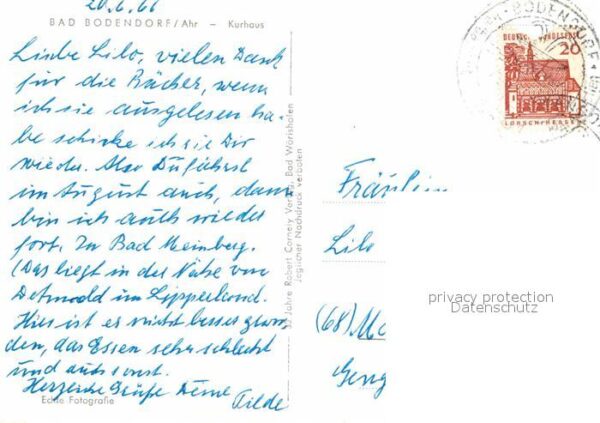 20.6.66
BAD BODENDORF/Ahr – Kurhaus
Liebe Lilo, vielen Dank
für die Bücher, wenn
ich sie ausgelesen ha-
be schicke ich sie Dir
wieder. Also Du fährst
im August auch, dann
bin ich auch wieder
fort. In Bad Meinberg.
(Das liegt in der Nähe von
Detmold im Lipperland.
Hier ist es nicht besser gewor
den, das Essen sehr schlecht
und auch sonst.
Herzliche Grüße Deine
Tilde
Echte Fotografie
Jahre Robert Cornely Verlag, Bad Wörishofen
Jeglicher Nachdruck verboten
BODENDORF
DEUTSCHE BUNDESPOST
20
LORSCH/HESSEN
Fräulein
Lilo
(68) Ma
Geng
privacy protection
Datenschutz